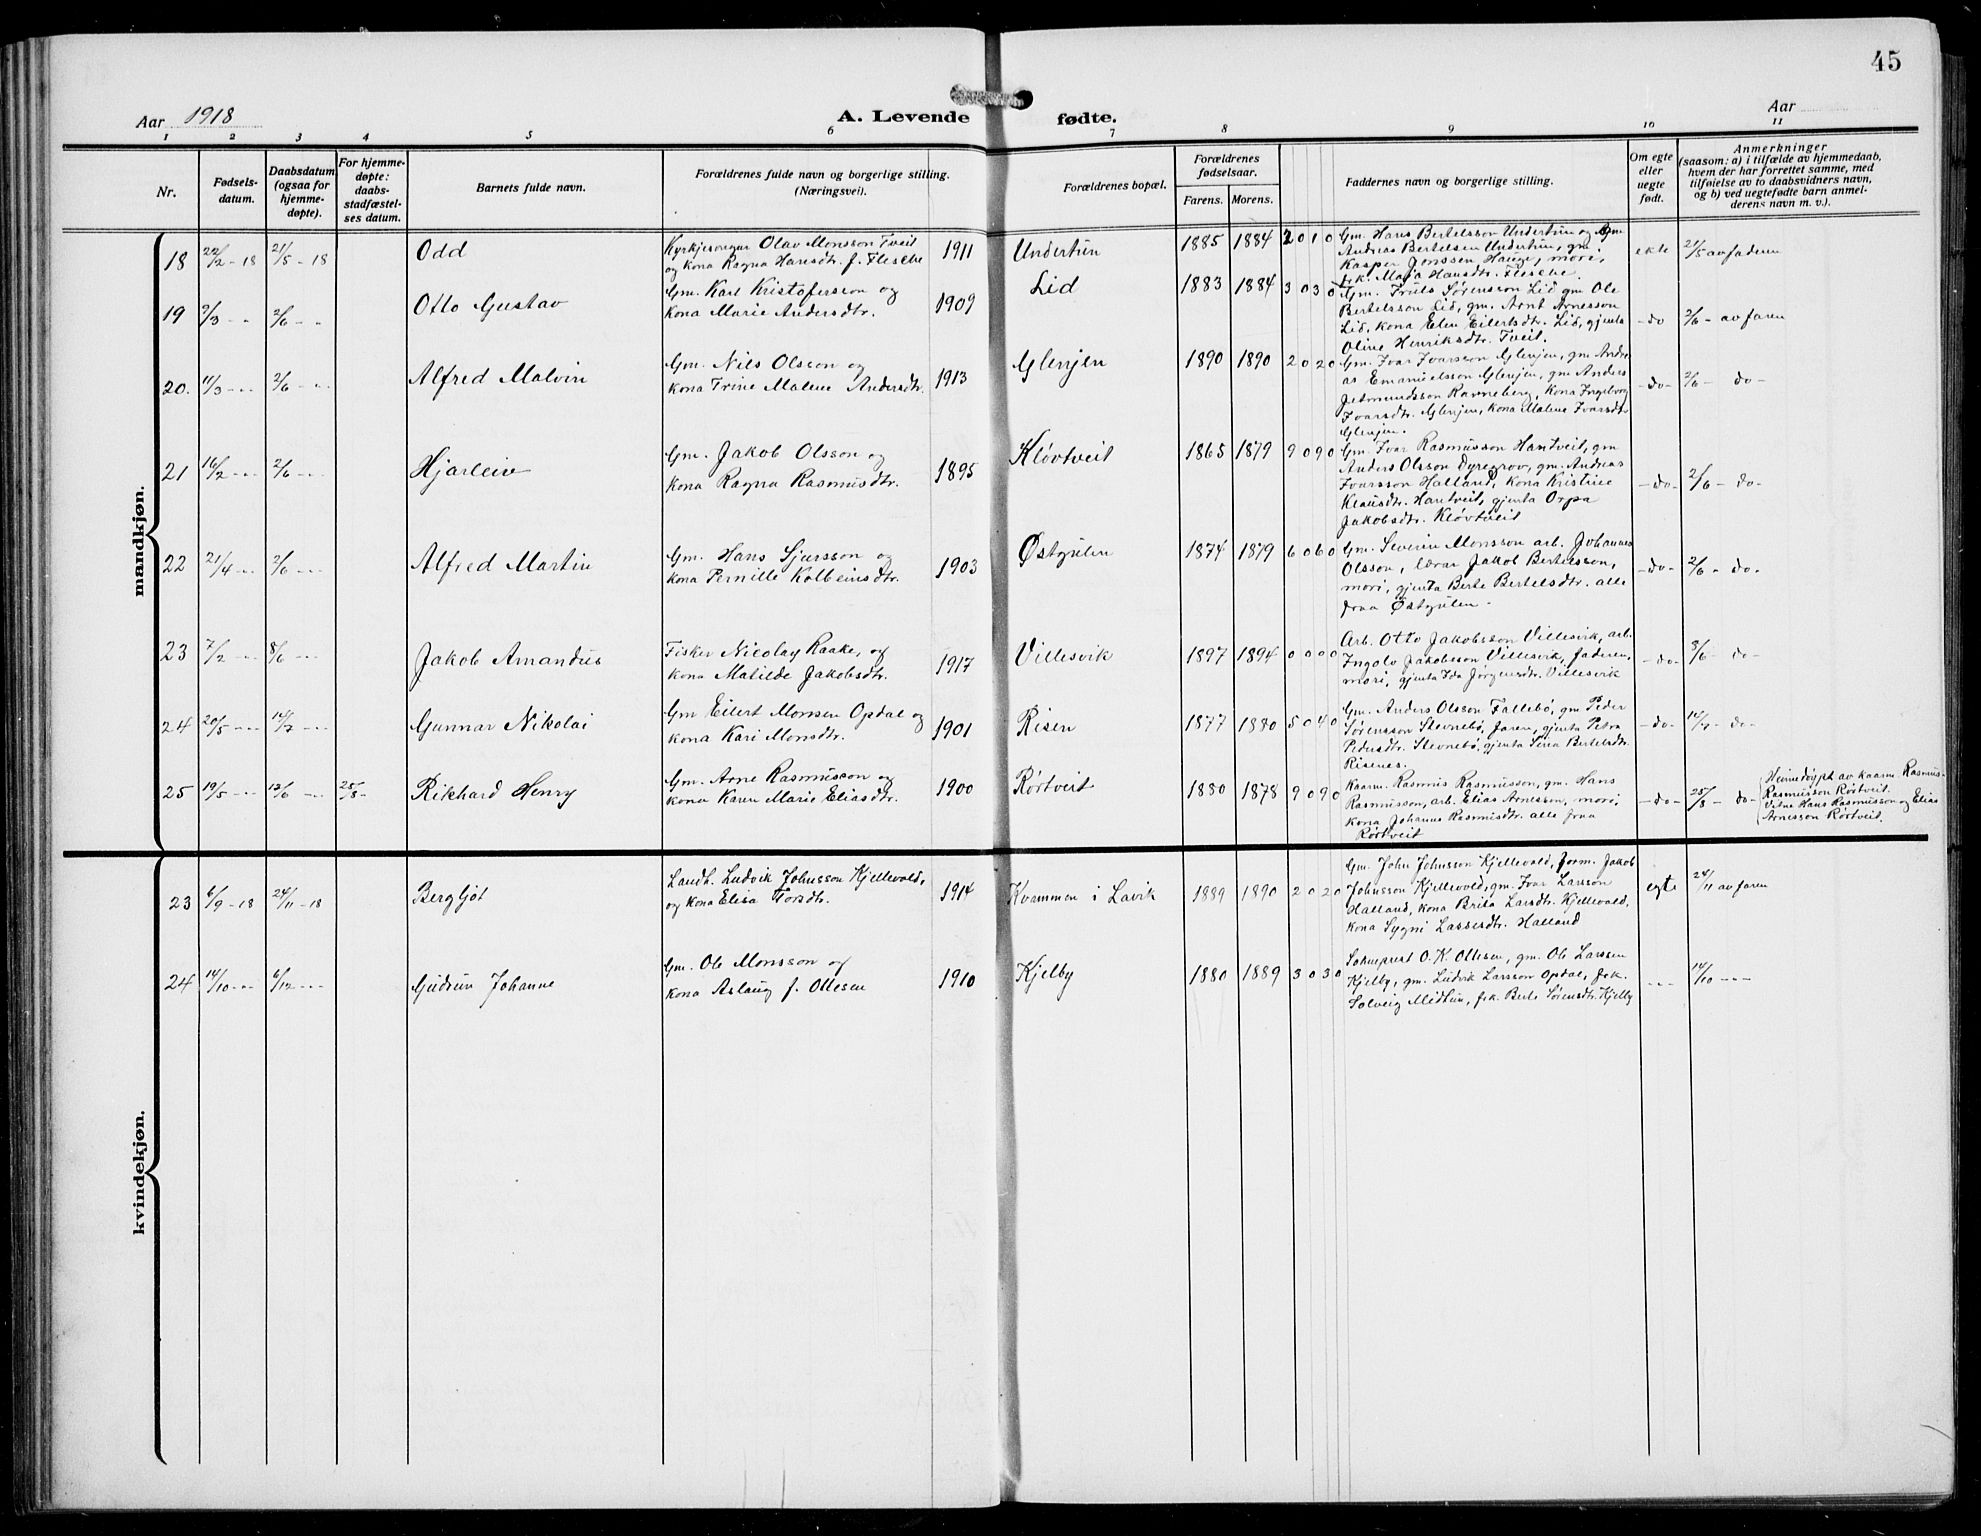 45
Aar 1918
A. Levende fødte.
Aar
1 2 3 4 5 6 7 8 9 10 11
Nr.
Fødsels-
datum.
Daabsdatum
(ogsaa for
hjemme-
døpte).
For hjemme-
døpte:
daabs-
stadfæstel-
ses datum.
Barnets fulde navn.
Forældrenes fulde navn og borgerlige stilling.
(Næringsvei).
Forældrenes bopæl.
Forældrenes
fødselsaar.
Farens. Morens.
Faddernes navn og borgerlige stilling.
Om egte
eller
uegte
født.
Anmerkninger
(saasom: a) i tilfælde av hjemmedaab,
hvem der har forrettet samme, med
tilføielse av to daabsvidners navn,
og b) ved uegtefødte barn anmel-
derens navn m. v.).
mandkjøn.
18 22/2 - 18 21/5 - 18 Odd
Kyrkjesongar Olav Monsson Tveit
og kona Ragna Hansdtr. f. Flesche
1911 Undertun 1885 1884 2 0 1 0
Gm. Hans Bertelsson Undertun og Gm.
Andreas Bertelsen Undertun, gm.
Kasper Jonssen Hauge, mori,
frk. Maria Hansdtr. Flesche.
ekte 21/5 av faderen
19 2/3 - - 2/6 - - Otto Gustav
Gm. Karl Kristofersson og
Kona Marie Andersdtr.
1909 Lid 1883 1884 3 0 3 0
Gm. Truls Sørensson Lid gm Ole
Bertelsson Lid, gm. Arnt Arnesson
Lid, kona Elen Eilertsdtr. Lid, gjenta
Oline Henriksdtr. Tveit.
- do 2/6 - av faren
20. 11/3 - - - 2/6 - - - Alfred Malvin
Gm. Nils Olsson og
kona Trine Malene Andersdtr.
1913 Glenjen 1890 1890 2 0 2 0
Gm. Ivar Ivarsson Glenjen, gm Andre
as Emanuelsson Glenjen, gm Anders
Jetmundsson Ravneberg, kona Ingeborg
Ivarsdtr. Glenjen, kona Malene Ivarsdtr
Glenjen.
- do - 2/6 - do -
21 16/2 - - - 2/6 - - - Hjarleiv
Gm. Jakob Olsson og
Kona Ragna Rasmusdtr.
1895 Kløvtveit 1865 1879 9 0 9 0
Gm. Ivar Rasmusson Hantveit, gm
Anders Olsson Dyregrov, gm. Andreas
Ivarsson Halland, kona Kristine
Klausdtr. Hantveit, gjenta Orpa
Jakobsdtr. Kløvtveit
- do - 2/6 - do -
22 21/4 - - - 2/6 - - - Alfred Martin
Gm. Hans Sjursson og
kona Pernille Kolbeinsdtr.
1903 Østgulen 1874 1879 6 0 6 0
Gm. Severin Monsson arb. Johannes
Olsson, lærar Jakob Bertelsson,
mori, gjenta Berte Bertelsdtr. alle
fraa Østgulen -
- do - 2/6 - do -
23 7/2 - - - 8/6 - - - Jakob Amandus
Fisker Nicolay Raake, og
kona Matilde Jakobsdtr.
1917 Villesvik 1897 1894 0 0 0 0
Arb. Otto Jakobsson Villesvik, arb.
Ingolv Jakobsson Villesvik, faderen,
mori, gjenta Ida Jørgensdtr. Villesvik
- do - 8/6 - do -
24 20/5 - - - 14/7 - - - Gunnar Nikolai
Gm Eilert Monsen Opdal og
kona Kari Monsdtr.
1901 Risen 1877 1880 5 0 4 0
Gm. Anders Olsson Fallebø, gm Peder
Sørensson Stevnebø, faren, gjenta Petra
Pedersdtr. Stevnebø, gjenta Sina Bertelsdtr.
Risenes.
- do - 14/7 - do -
25 19/5 - - - 12/6 - - - 25/8 - Rikhard Henry
Gm. Arne Rasmusson og
kona Karen Marie Eliasdtr.
1900 Rørtveit 1880 1878 9 0 9 0
Kaarm. Rasmus Rasmusson, gm. Hans
Rasmusson, arb. Elias Arnesson, mori,
kona Johanne Rasmusdtr. alle fraa
Rørtveit
- do - 25/8 - do -
Heimedøypt av kaarm Rasmus
Rasmusson Rørtveit.
Vitne Hans Rasmusson og Elias
Arnesson Rørtveit.
kvindekjøn.
23 6/9 - 18 24/11 - 18 Bergljot
Landh. Ludvik Johnsson Kjellevold,
og kona Elisa Torsdtr.
1914 Kvammen i Lavik 1889 1890 2 0 2 0
Gm. John Johnsson Kjellevold, form. Jakob
Johnsson Kjellevold, gm. Ivar Larsson
Halland, kona Brita Larsdtr. Kjellevold,
kona Sygni Lassesdtr. Halland
egte 24/11 av faren
24 14/10 - - - 6/12 - - - Gudrun Johanne
Gm. Ole Monsson og
kona Aslaug f. Ottesen
1910 Kjelby 1880 1889 3 0 3 0
Sokneprest O. K. Ottesen, gm. Ole Larssen
Kjelby, gm. Ludvik Larsson Opdal, frk.
Solveig Midtun, frk. Berte Sørensdtr. Kjelby
- - - 14/10 - - -